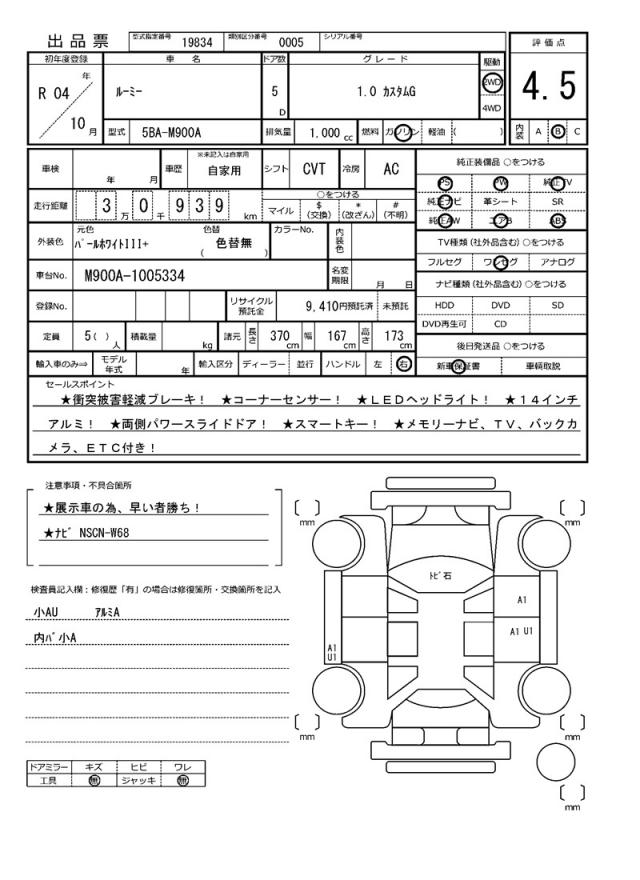 出品票 型式指定番号 19834 類別区分番号 0005 シリアル番号
評価点
4.5
内装 A B C
初年度登録 車名 ドア数 グレード 駆動
R 04 年 10 月 ルーミー 5 D 1.0 カスタムG 2WD 4WD
型式 5BA-M900A 排気量 1,000 cc 燃料 ガソリン 軽油 ( )
車検 年 月 車歴 ※未記入は自家用 自家用 シフト CVT 冷房 AC
走行距離 3 万 0 千 9 3 9 km ○をつける
マイル $ (交換) * (改ざん) # (不明)
外装色 元色 パールホワイトIII+ 色替 ( 色替無 ) カラーNo. 内装色
車台No. M900A-1005334 名変期限 月 日
登録No. リサイクル預託金 9,410円預託済 未預託
定員 5( ) 人 積載量 kg 諸元 長さ 370 cm 幅 167 cm 高さ 173 cm
輸入車のみ⇒ モデル年式 年 輸入区分 ディーラー 並行 ハンドル 左 右
純正装備品 ○をつける
PS PW 純正TV
純正ナビ 革シート SR
純正AW エアB ABS
TV種類 (社外品含む) ○をつける
フルセグ ワンセグ アナログ
ナビ種類 (社外品含む) ○をつける
HDD DVD SD
DVD再生可 CD
後日発送品 ○をつける
新車保証書 車輌取説
セールスポイント
★衝突被害軽減ブレーキ! ★コーナーセンサー! ★LEDヘッドライト! ★14インチ
アルミ! ★両側パワースライドドア! ★スマートキー! ★メモリーナビ、TV、バックカ
メラ、ETC付き!
注意事項・不具合箇所
★展示車の為、早い者勝ち!
★ナビ NSCN-W68
検査員記入欄:修復歴「有」の場合は修復箇所・交換箇所を記入
小AU アルミA
内バ小A
ドアミラー キズ ヒビ ワレ
工具 無 ジャッキ 無
mm
mm
トビ石
A1
A1 U1
A1
U1
mm
mm
mm